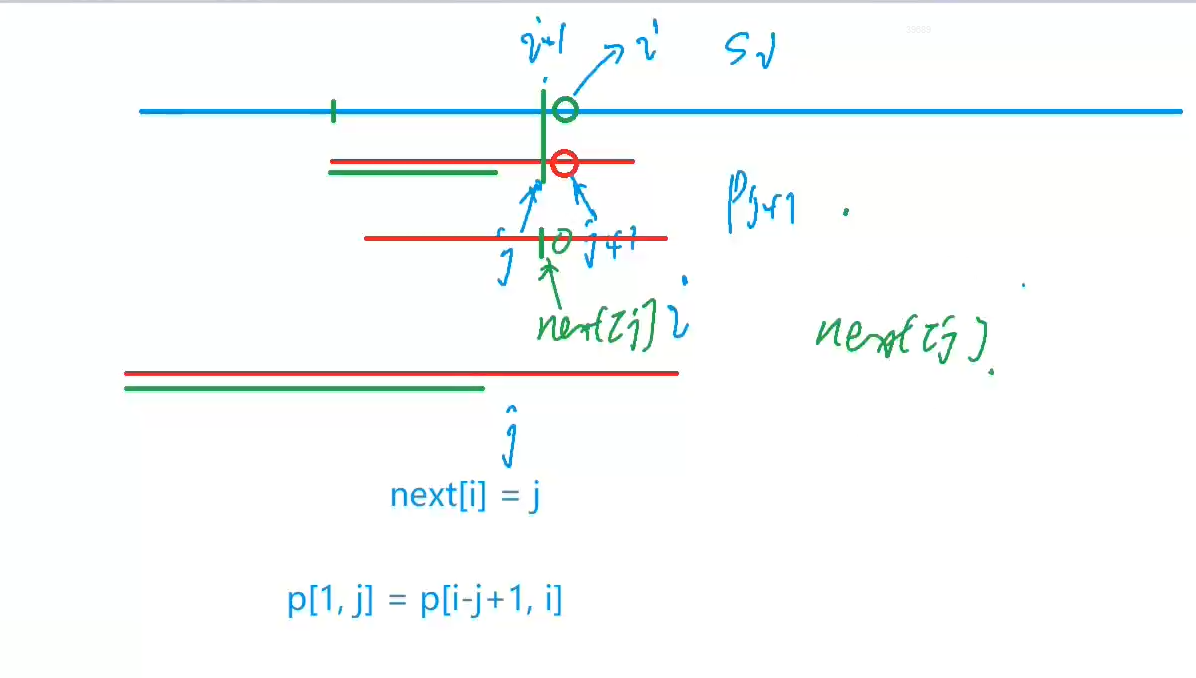 i+1
i
Si
Pj+1
j
j+1
next[j]
i
next[j]
j
next[i] = j
p[1, j] = p[i-j+1, i]